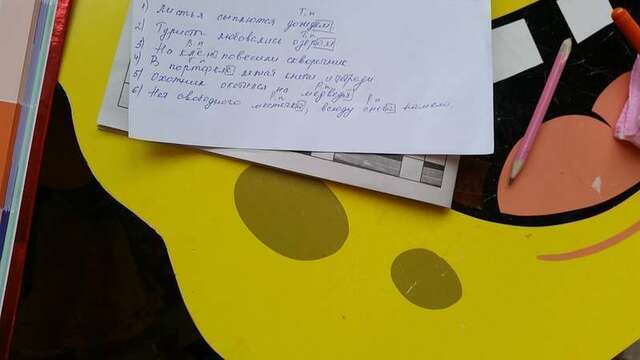 Т.п
1) Листья сыплются дождём
Т.п
2) Туристы любовались озером
В.п
3) На клён повесили скворечник.
П.п
4) В портфеле лежат книги и тетради
5) Охотник охотился на медведя
Р.п Р.п
6) Нет свободного местечка, всюду снега намело.